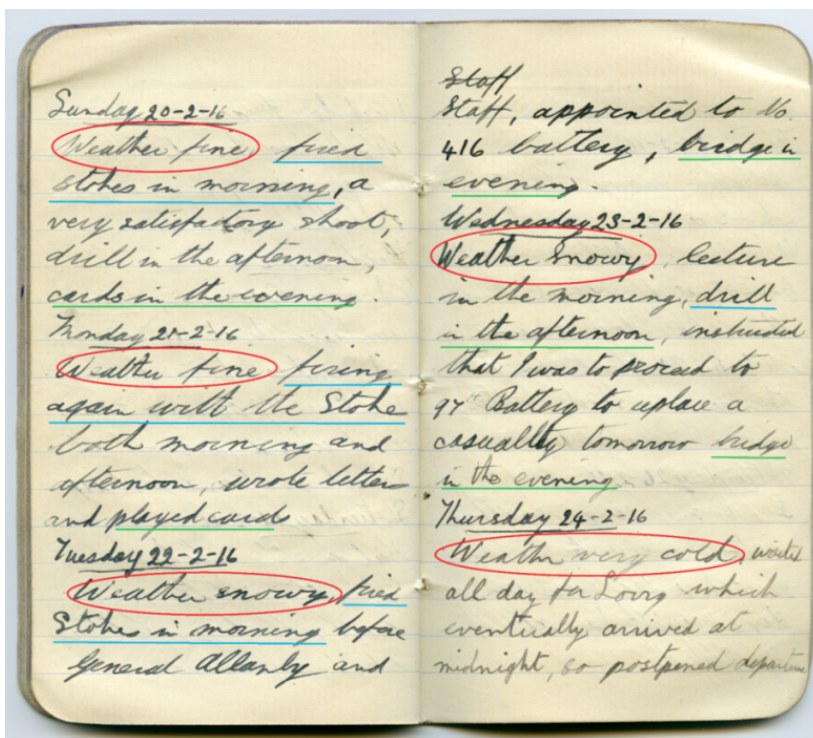 Sunday 20-2-16
Weather fine, fired
Stokes in morning, a
very satisfactory shoot,
drill in the afternoon,
cards in the evening.
Monday 21-2-16
Weather fine firing
again with the Stoke
both morning and
afternoon, wrote letters
and played cards
Tuesday 22-2-16
Weather snowy, fired
Stokes in morning before
General Allanby and
Staff
Staff, appointed to No.
416 battery, bridge in
evening.
Wednesday 23-2-16
Weather snowy, lecture
in the morning, drill
in the afternoon, instructed
that I was to proceed to
97th Battery to replace a
casualty tomorrow bridge
in the evening
Thursday 24-2-16
Weather very cold, waited
all day for Lorry which
eventually arrived at
midnight, so postponed departure